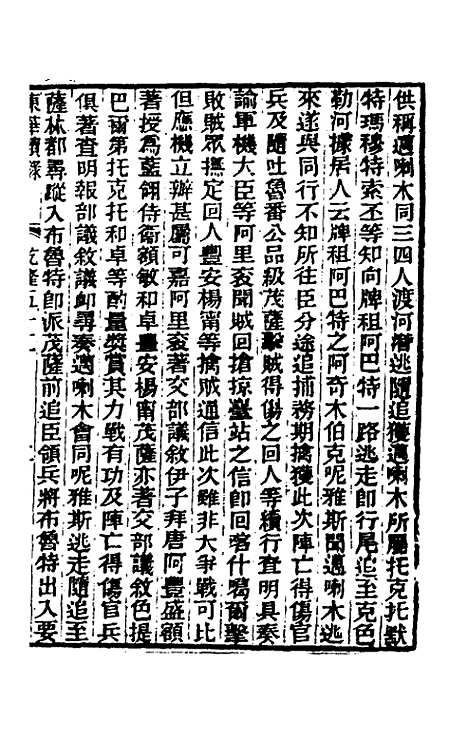 供稱邁喇木同三四人渡河潛逃隨追獲邁喇木所屬托克托默
特瑪穆特索丕等知向牌租阿巴特一路逃走即行尾追至克色
勒河據居人云牌租阿巴特之阿奇木伯克呢雅斯聞邁喇木逃
來遂與同行不知所往臣分途追捕務期擒獲此次陣亡得傷官
兵及隨吐魯番公品級茂薩擊賊得傷之回人等續行查明具奏
諭軍機大臣等阿里袞聞賊回搶掠臺站之信即回喀什噶爾擊
敗賊眾撫定回人豐安楊甯等擒賊通信此次雖非大爭戰可比
但應機立辦甚屬可嘉阿里袞著交部議敘伊子拜唐阿豐盛額
著授爲藍翎侍衛額敏和卓豐安楊甯茂薩亦著交部議敘色提
巴爾第托克托和卓等酌量獎賞其力戰有功及陣亡得傷官兵
俱著查明報部議敘議卹尋奏邁喇木會同呢雅斯逃走隨追至
薩林都尋蹤入布魯特卽派茂薩前追臣領兵將布魯特出入要
東華續錄 乾隆五十二